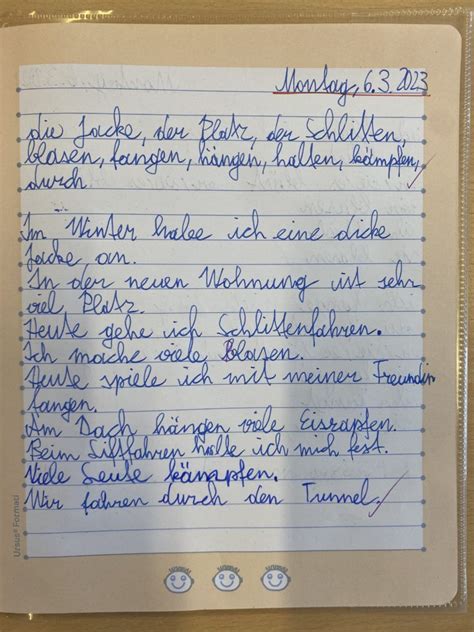 Montag, 6.3.2023
die Jacke, der Platz, der Schlitten,
blasen, fangen, hängen, halten, kämpfen,
durch
Im Winter habe ich eine dicke
Jacke an.
In der neuen Wohnung ist sehr
viel Platz.
Heute gehe ich Schlittenfahren.
Ich mache viele Blasen.
Heute spiele ich mit meiner Freundin
fangen.
Am Dach hängen viele Eiszapfen.
Beim Liftfahren halte ich mich fest.
Viele Leute kämpfen.
Wir fahren durch den Tunnel.
Ursus® Formati